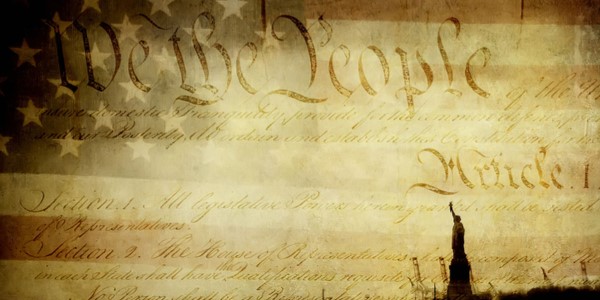 We the People
of the
insure domestic Tranquility, provide for the common defence,
and our Posterity, do ordain and establish this Constitution
Article. I.
Section. 1. All legislative Powers herein granted shall be vested
of Representatives.
Section. 2. The House of Representatives shall be composed of Mem
in each State shall have the Qualifications requisite
No Person shall be a Representative